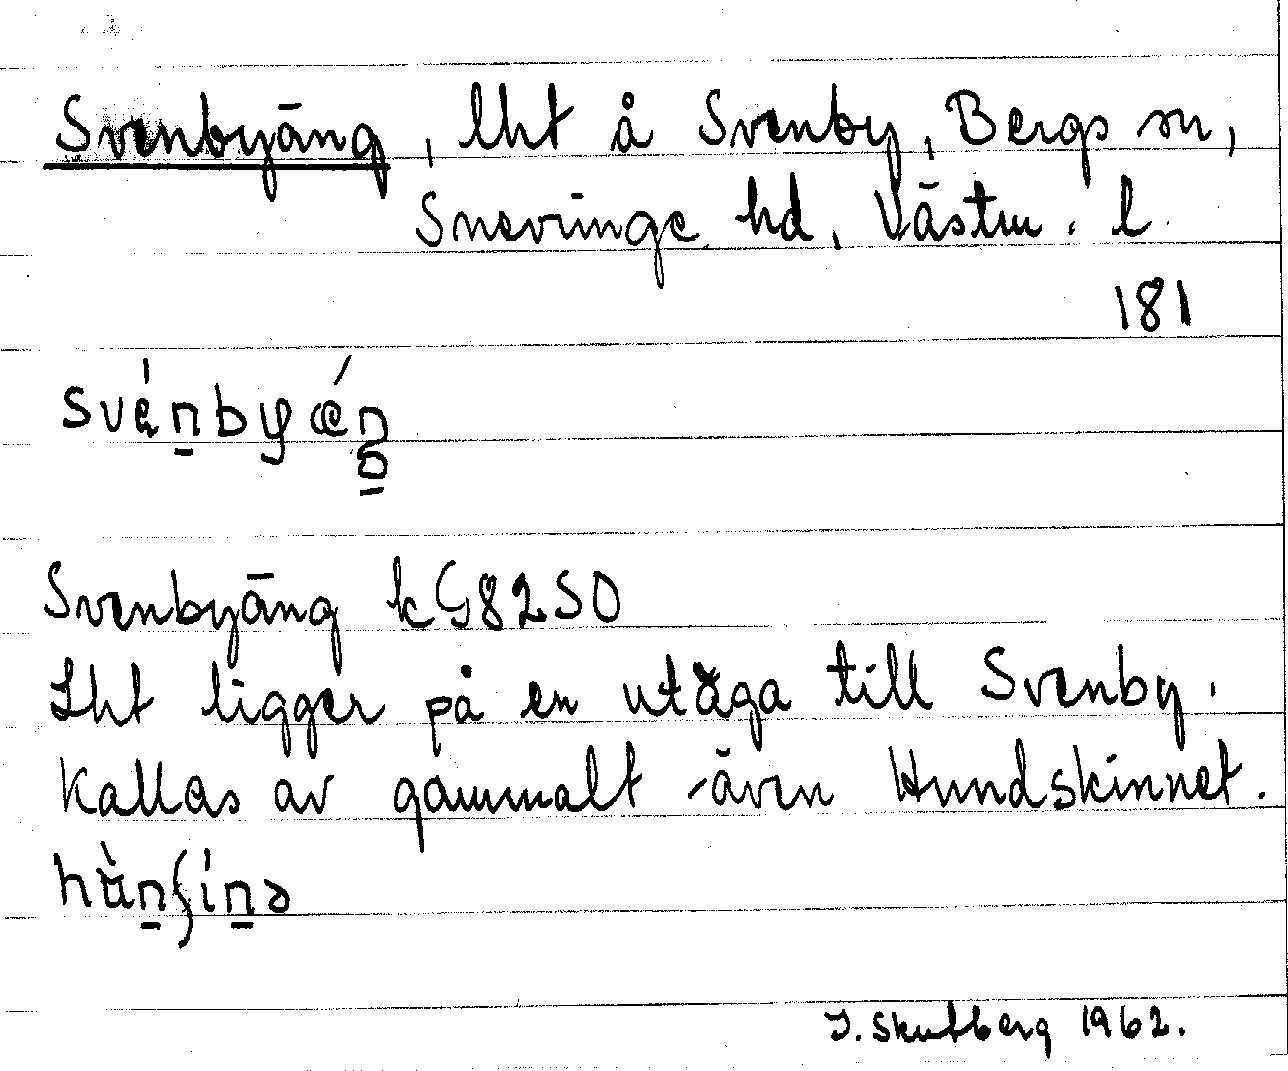 Svenbyäng, lht å Svenby, Bergs sn,
Snevringe hd, Västm. l.
181
svénbyǽŋ
Svenbyäng kG8250
Lht ligger på en utäga till Svenby.
Kallas av gammalt även Hundskinnet.
hùnʃínə
I. Skutberg 1962.